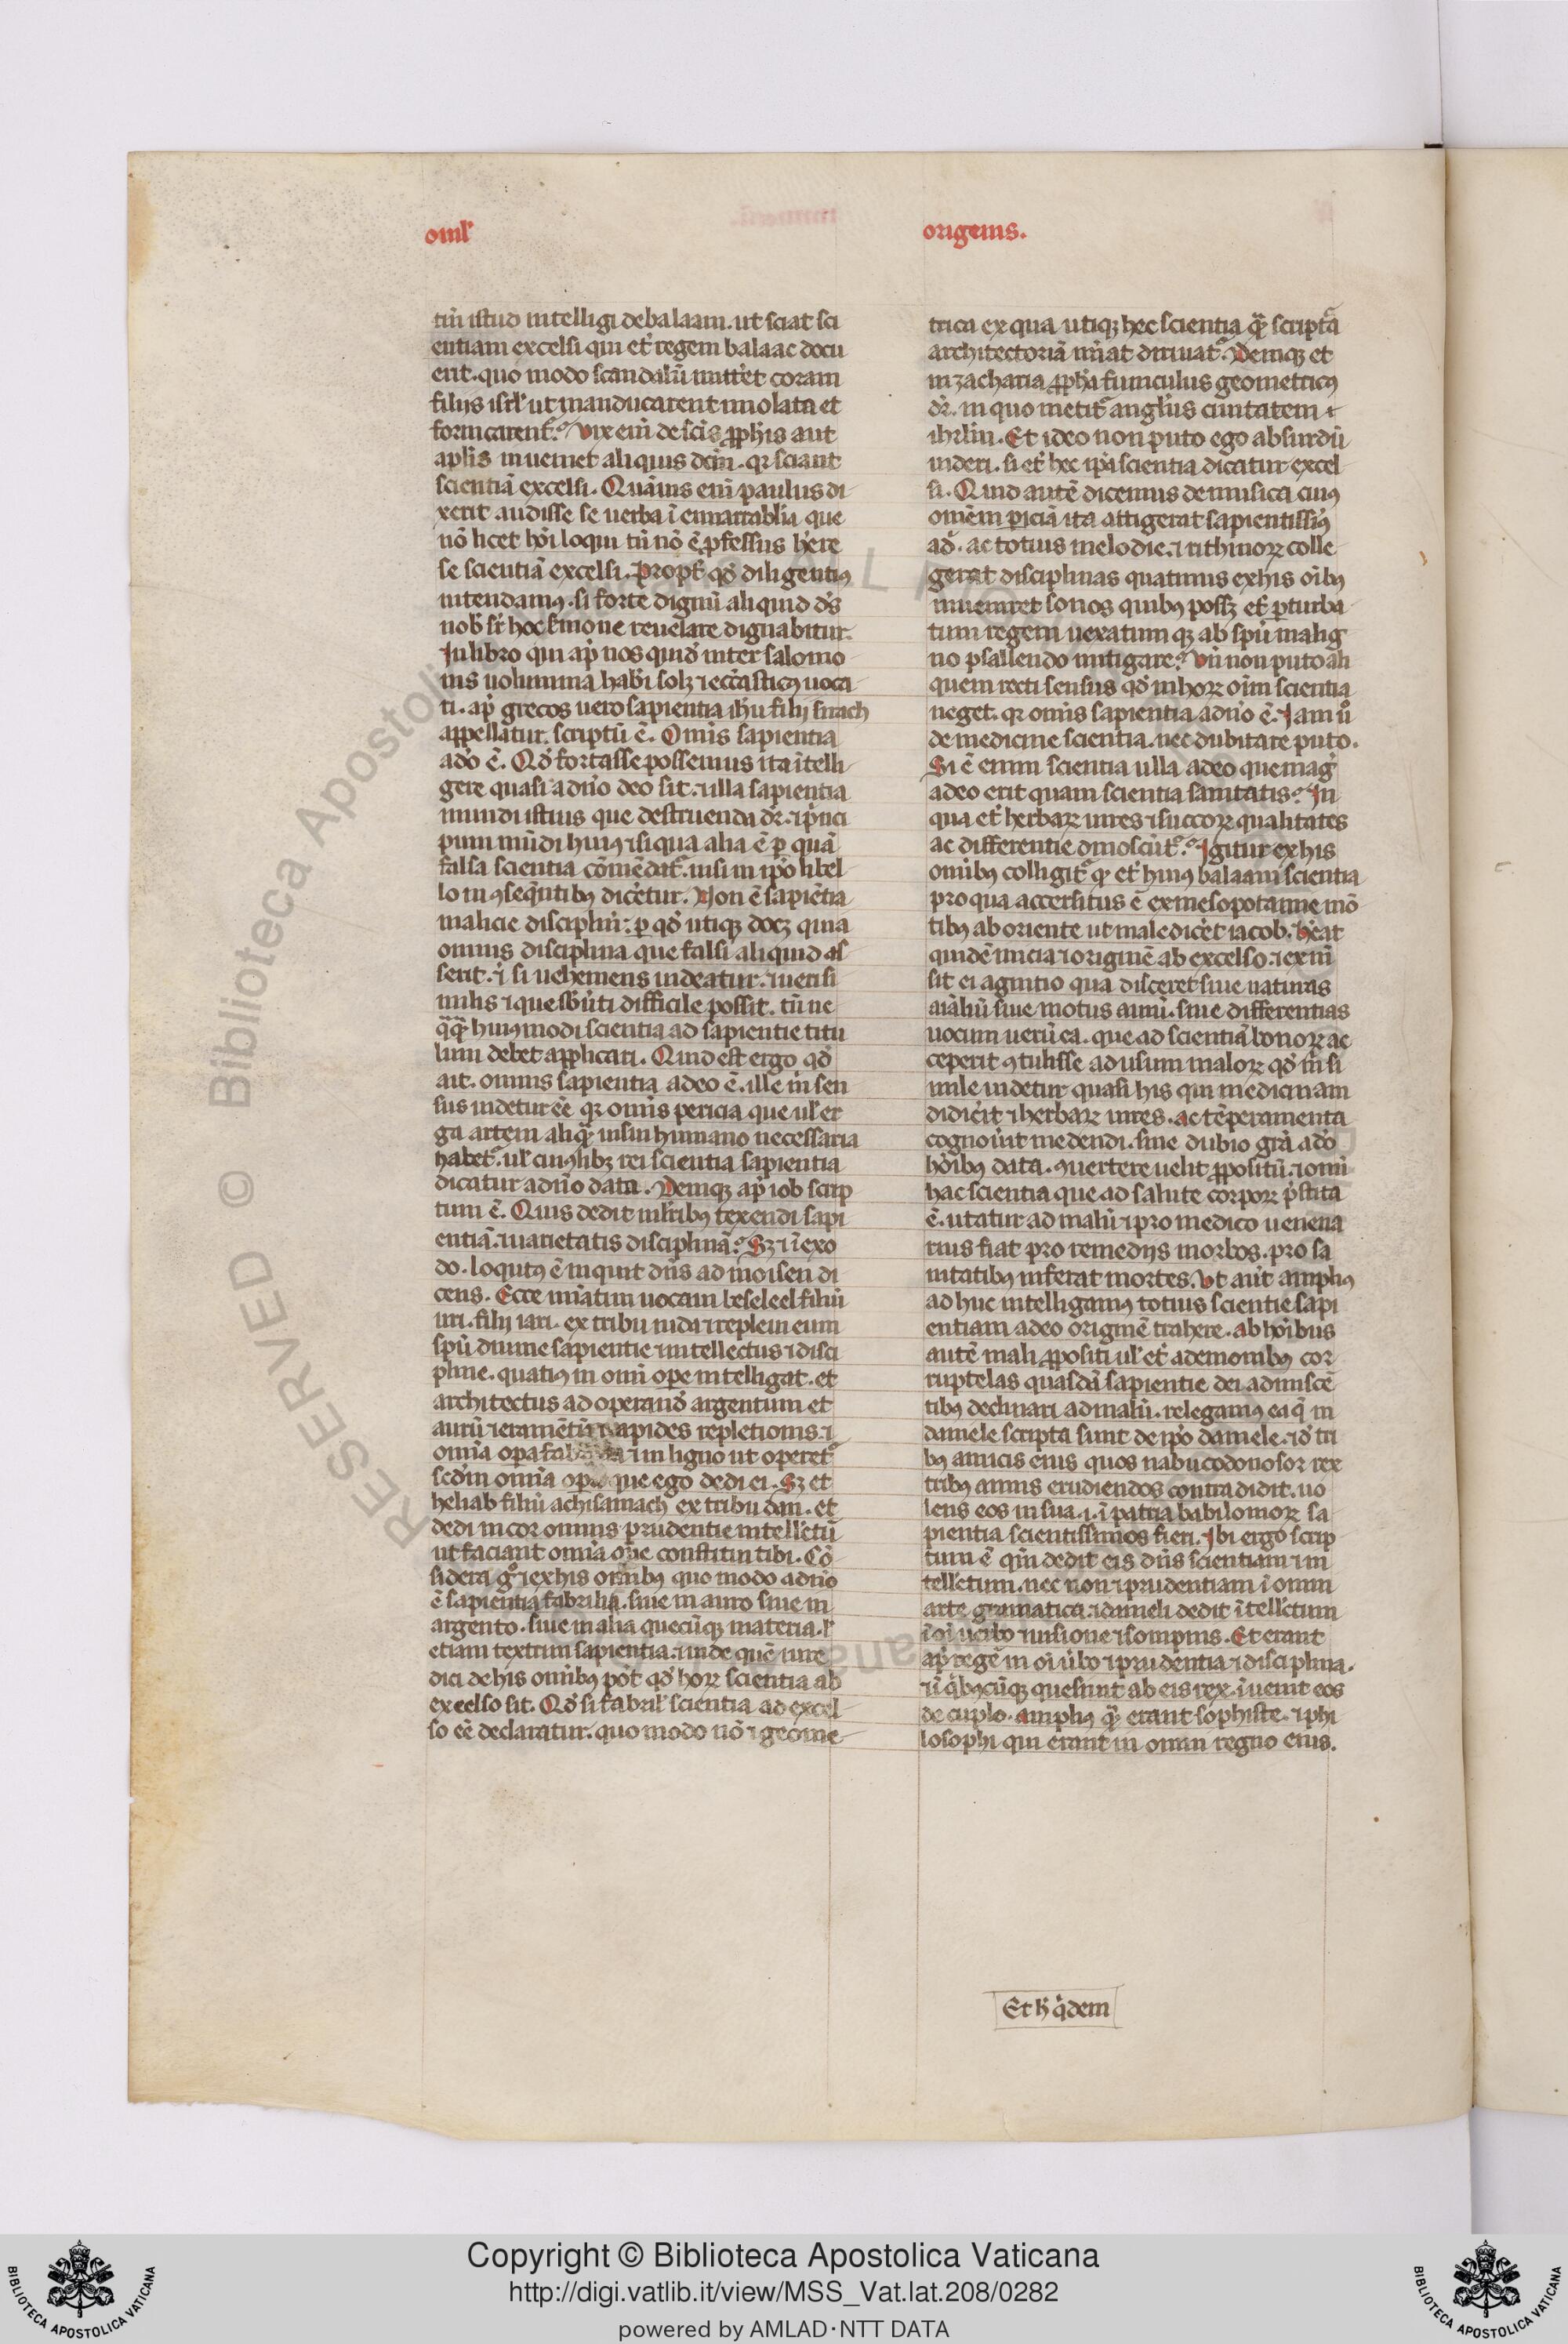 omł
origenis.
tm̄ istud intelligi debalaam. ut sciat sci
entiam excelsi qui et̛ regem balaac docu
erit. quo modo scandalū mitt̛et coram
filijs isrł ut manducarent imolata et
fornicarent̛. Vix eni̅ de sc̅is ꝓph̛is aut
apl̛is inueniet aliquis dc̅m. qr sciant
scientiā excelsi. Quāuis eni̅ paulus di
xerit audisse se uerba i̅ ennarrabl̛ia que
nō licet ho̅i loqui tn̅ nō ē ꝓfessus h̛ere
se scientiā excelsi. Propt̛ qd̛ diligentiꝰ
intendamꝰ. si forte dignū aliquid d̅s
nob̛ sr̛ hoc s̛mone reuelare dignabitur.
In libro qui ap̛ nos quid̛ inter salomo
nis uolumina hab̛i solꝫ ⁊ ecc̅asticꝰ uoca
ri. ap̛ grecos uero sapientia ih̅u filij sirach
appellatur. scriptū ē. Omīs sapientia
ado̅ ē. Qd̛ fortasse possemus ita i̅telli
gere quasi a dn̅o deo sit. ⁊ ulla sapientia
mundi istius que destruenda dr̛. ⁊ p̛nci
pum mūdi huiꝰ ⁊ si qua alia ē ꝑ quā
falsa scientia cōmēdat̛. nisi in ip̅o libel
lo in ꝯseq̅ntibꝰ dic̛etur. Non ē sapiētia
malicie disciplin̅. ꝑ qd̛ utiqꝫ docꝫ quia
omnis disciplina que falsi aliquid as
serit. ⁊ si uehemens uideatur. ⁊ uerisi
milis ⁊ que sbu̅ti difficile possit. tn̅ ne
q̅q̅ huiꝰmodi scientia ad sapientie titu
lum debet applicari. Quid est ergo qd̛
ait. omnis sapientia adeo ē. ille m̛ sen
sus uidetur ēē qr omīs pericia que ul̛ er
ga artem aliq̅ in usu humano necessaria
habet̛. ul̛ cuiꝰlibꝫ rei scientia sapientia
dicatur a dn̅o data. Deniqꝫ ap̛ iob scrip
tum ē. Quis dedit mul̛ribꝰ texendi sapi
entiā. ⁊ uarietatis disciplinā. Sꝫ ⁊ i̅ exo
do. loqutꝰ ē inquit dn̅s ad moisen di
cens. Ecce n̅iatim uocaui beseleel filiū
uri. filij iari. ex tribu iuda ⁊ repleui eum
spu̅ diuine sapientie ⁊ intellectus ⁊ disci
pline. quatiꝰ in om̅i ope intelligat. et
architectus ad operand̛ argentum et
aurū ⁊ eramētū lapides repletionis. ⁊
omīa opa fab ⁊ in ligno ut operet̛
scd̛m omīa opa que ego dedi ei. Sꝫ et
heliab filiū achisamach ex tribu dan. et
dedi in cor omnis prudentie intell̛ctū
ut faciant omīa que constitui tibi. Cō
sidera g̛ ⁊ ex his omībꝰ quo modo a dn̅o
ē sapientia fabrilis. siue in auro siue in
argento. siue in alia quecūqꝫ materia. ł
etiam textrini sapientia. ⁊ inde quē iure
dici de his omībꝰ pōt qd̛ horꝝ scientia ab
excelso sit. Qd̛ si fabril̛ scientia ad excel
so ēē declaratur. quo modo nō ⁊ geome
trica ex qua utiqꝫ hec scientia q̅ scriptā
architectoriā n̅iat diriuat̛. Deniqꝫ et
in zacharia ꝓph̛a funiculus geometricꝰ
dr̛. in quo metit̛ angl̛us ciuitatem ⁊
ihrl̛m. Et ideo non puto ego absurdū
uideri. si et̛ hec ip̅a scientia dicatur excel
si. Quid autē dicemus de musica cuiꝰ
omēm ꝑiciā ita attigerat sapientissi̅ꝰ
dd̛. ac totius melodie. ⁊ rithmorꝝ colle
gerat disciplinas quatinus ex his oībꝰ
inueniret sonos quibꝰ possꝫ et̛ ꝑturba
tum regem uexatum qꝫ ab spu̅ malig
no psallendo mitigare. Vn̅ non puto ali
quem recti sensus qd̛ in horꝝ oīm scientia
neget. qr omīs sapientia a dn̅o ē. Iam ů
de medicine scientia. nec dubitare puto.
Si ē enim scientia ulla adeo que mag̛
adeo erit quam scientia sanitatis. In
qua et̛ herbarꝝ uires ⁊ succorꝝ qualitates
ac differentie dinoscūt̛. Igitur ex his
omībꝰ colligit̛ qr et̛ huiꝰ balaam scientia
pro qua accersitus ē ex mesopotamie mō
tibꝰ ab oriente ut maledic̛et iacob. h̛eat
quidē inicia ⁊ originē ab excelso. ⁊ ex in̅
sit ei agnitio qua disceret siue naturas
aīaliū siue motus animi. siue differentias
uocum uerū ea. que ad scientiā bonorꝝ ac
ceperit ꝯtulisse ad usum malorꝝ qd̛ m̛ si
mile uidetur quasi his qui medicinam
didic̛it ⁊ herbarꝝ uires. ac tēperamenta
cognou̅it medendi. siue dubio gr̅a ado̅
ho̅ibꝰ data. ꝯuertere uelit ꝓpositū. ⁊ om̅i
hac scientia que ad salutē corporꝝ p̛stita
ē. utatur ad malū ⁊ pro medico uenena
rius fiat pro remedijs morbos. pro sa
nitatibꝰ inferat mortes. Vt aut̅ ampliꝰ
ad huc intelligamꝰ totius scientie sapi
entiam adeo originē trahere. ab ho̅ibus
autē mali ꝓpositi ul̛ et̛ a demonibꝰ cor
ruptelas quasdā sapientie dei admiscē
tibꝰ declinari ad malū. relegamꝰ ea q̅ in
daniele scripta sunt de ip̅o daniele. ⁊ d̛ tri
bꝰ amicis eius quos nabucodonosor rex
tribꝰ annis erudiendos contradidit. uo
lens eos in sua. i. i̅ patria babilonior̛ sa
pientia scientissimos fieri. Ibi ergo scrip
tum ē qm̅ dedit eis dn̅s scientiam ⁊ in
tell̛ctum. nec non ⁊ prudentiam i̅ omni
arte gramatica. ⁊ danieli dedit i̅tell̛ctum
i̅ oi̅ uerbo ⁊ uisione ⁊ sompnis. Et erant
ap̛ regē in oi̅ ůbo ⁊ prudentia ⁊ disciplina.
⁊ i̅ q̅bꝰcūqꝫ quesiuit ab eis rex. i̅uenit eos
decuplo. ampliꝰ q̅ erant sophiste. ⁊ phi
losophi qui erant in omni regno eius.
Et h̛ q̛dem
RESERVED © Biblioteca Apostolica Vaticana
Copyright © Biblioteca Apostolica Vaticana
http://digi.vatlib.it/view/MSS_Vat.lat.208/0282
powered by AMLAD·NTT DATA
BIBLIOTECA APOSTOLICA VATICANA
BIBLIOTECA APOSTOLICA VATICANA